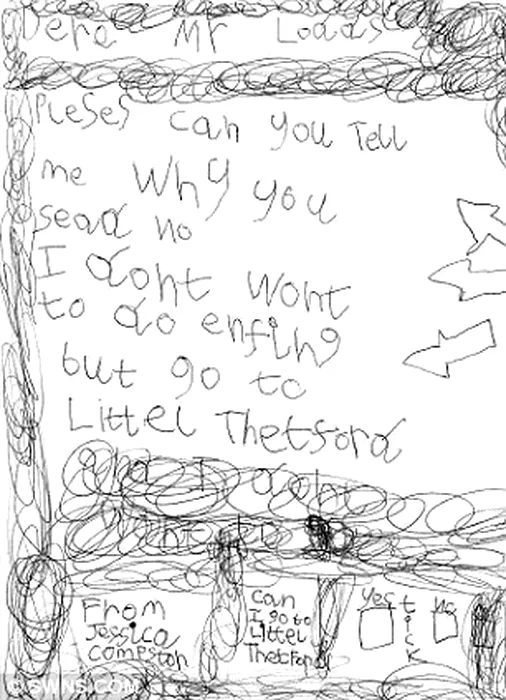 Dere Mr Loads
Pleses can you Tell
me Why you
sead no
I dont wont
to do enfing
but go to
Littel Thetford
and I dont
From
Jessica
Compston
can
I go to
Littel
Thetford
Yes tick no
© SWNS.COM